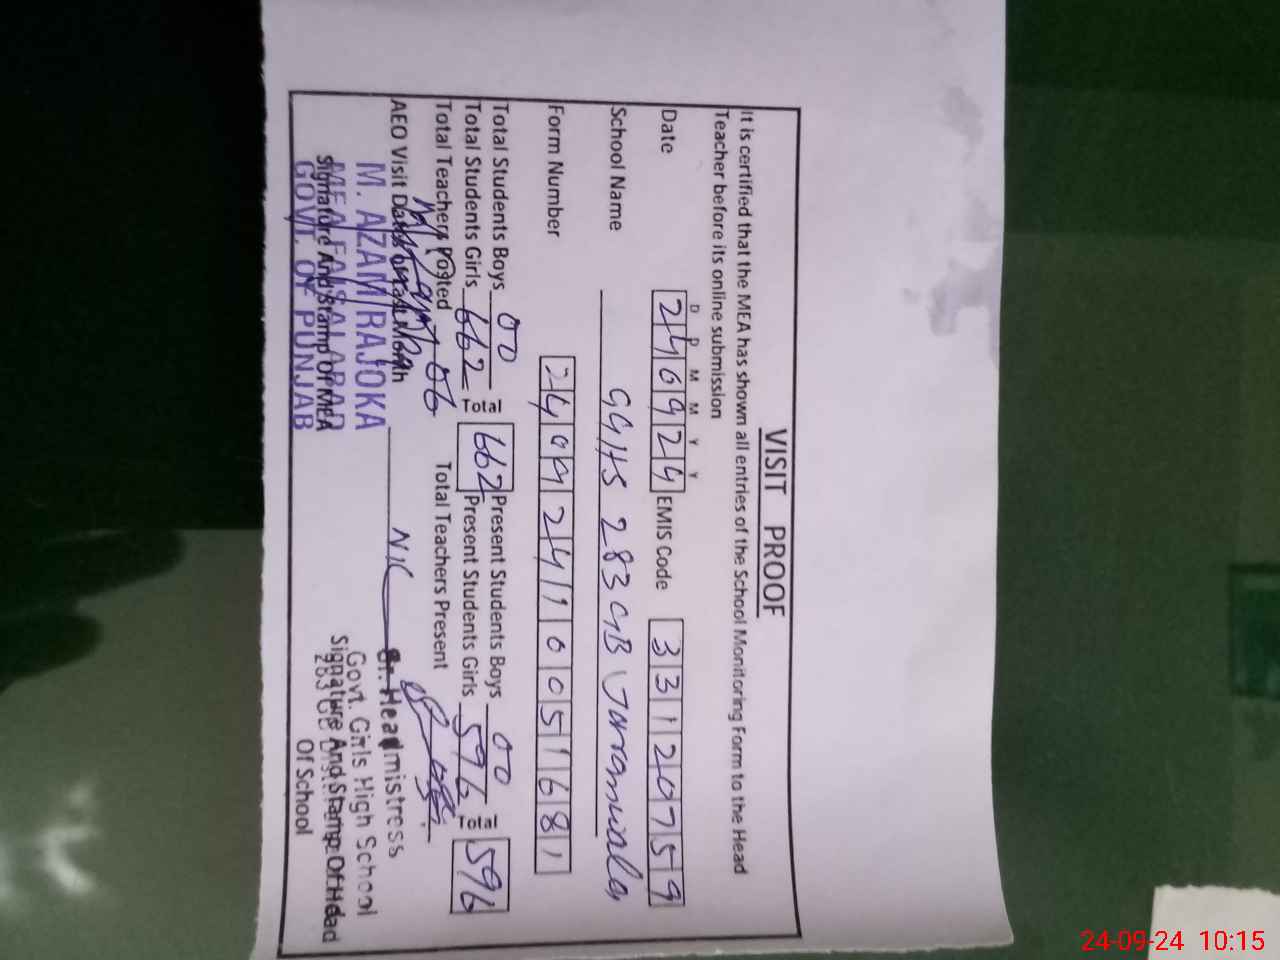 VISIT PROOF
It is certified that the MEA has shown all entries of the School Monitoring Form to the Head
Teacher before its online submission
D D M M Y Y
Date 240924 EMIS Code 33120759
School Name GGHS 283 GB
Form Number 240924110051681
Total Students Boys 00 Total 662 Present Students Boys 00 Total 596
Total Students Girls 662 Present Students Girls 596
Total Teachers Posted 06 Total Teachers Present
AEO Visit Dates of Last Month Nil
M. AZAM RAJOKA
MEA FAISALABAD
GOVT. OF PUNJAB
Signature And Stamp Of MEA
Sr. Headmistress
Govt. Girls High School
283 GB
Signature And Stamp Of Head
Of School
24-09-24 10:15